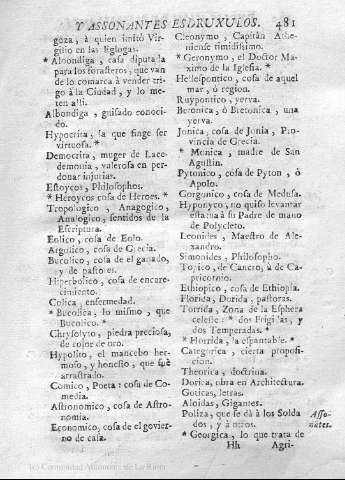 Y ASSONANTES ESDRUXULOS. 481
goza, à quien imitó Vir-
gilio en las Eglogas.
* Alhondiga, casa diputada
para los forasteros, que van
de lo comarca à vender tri-
go à la Ciudad, y lo me-
ten alli.
Albondiga, guisado conoci-
do.
Hypocrita, la que finge ser
virtuosa. *
Democrita, muger de Lace-
demonia, valerosa en per-
donar injurias.
Estoycos, Philosophos.
* Héroycos cosa de Heroes. *
Tropologico, Anagogico,
Analogico, sentidos de la
Escriptura.
Eolico, cosa de Eolo.
Argolico, cosa de Grecia.
Bucolico, cosa de el ganado,
y de pastores.
Hiperbolico, cosa de encare-
cimiento.
Colica, enfermedad.
* Bucolica, lo mismo, que
Bucolico. *
Chrysolyto, piedra preciosa,
de color de oro.
Hypolito, el mancebo her-
moso, y honesto, que fue
arrastrado.
Comico, Poeta: cosa de Co-
media.
Astronomico, cosa de Astro-
nomia.
Economico, cosa de el govier-
no de casa.
Cleonymo, Capitán Athe-
niense timidisimo.
* Geronymo, el Doctor Ma-
ximo de la Iglesia. *
Hellespontico, cosa de aquel
mar, ó region.
Ruypontico, yerva.
Beronica, ó Bretonica, una
yerva.
Jonica, cosa de Jonia, Pro-
vincia de Grecia.
* Monica, madre de San
Agustin.
Pytonico, cosa de Pyton, ó
Apolo.
Gorgonico, cosa de Medusa.
Hyponyco, no quiso levantar
estatua à su Padre de mano
de Polycleto.
Leonides, Maestro de Ale-
xandro.
Simonides, Philosopho.
Topico, de Cancro, à de Ca-
pricornio.
Ethiopico, cosa de Ethiopia.
Florida, Dorida, pastoras.
Torrida, Zona de la Esphera
celeste: * dos Frigidas, y
dos Temperadas. *
* Horrida, la espantable. *
Categorica, cierta proposi-
cion.
Theorica, doctrina.
Dorica, obra en Architectura.
Goticas, letras.
Aloidas, Gigantes.
Poliza, que se dà à los Solda
dos, y à otros.
Asso-
nātes.
* Georgica, lo que trata de
Hh Agri-
(c) Comunidad Autónoma de La Rioja